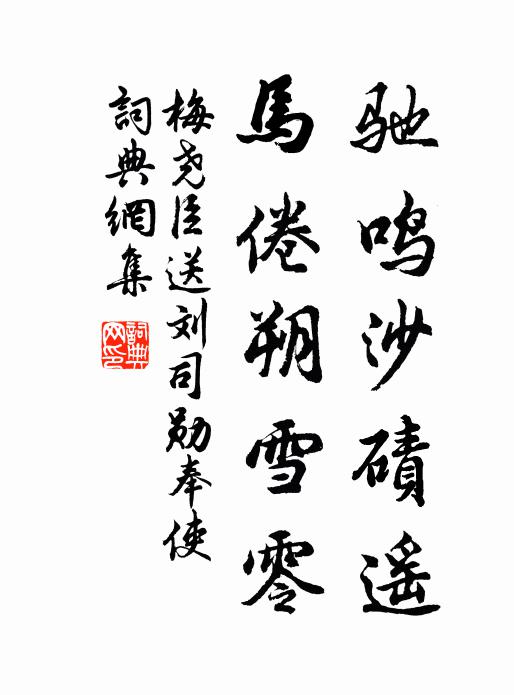 驰鸣沙磧遥
馬倦朔雪零
梅尧臣送刘司勋奉使
詞典網集
詞典网印